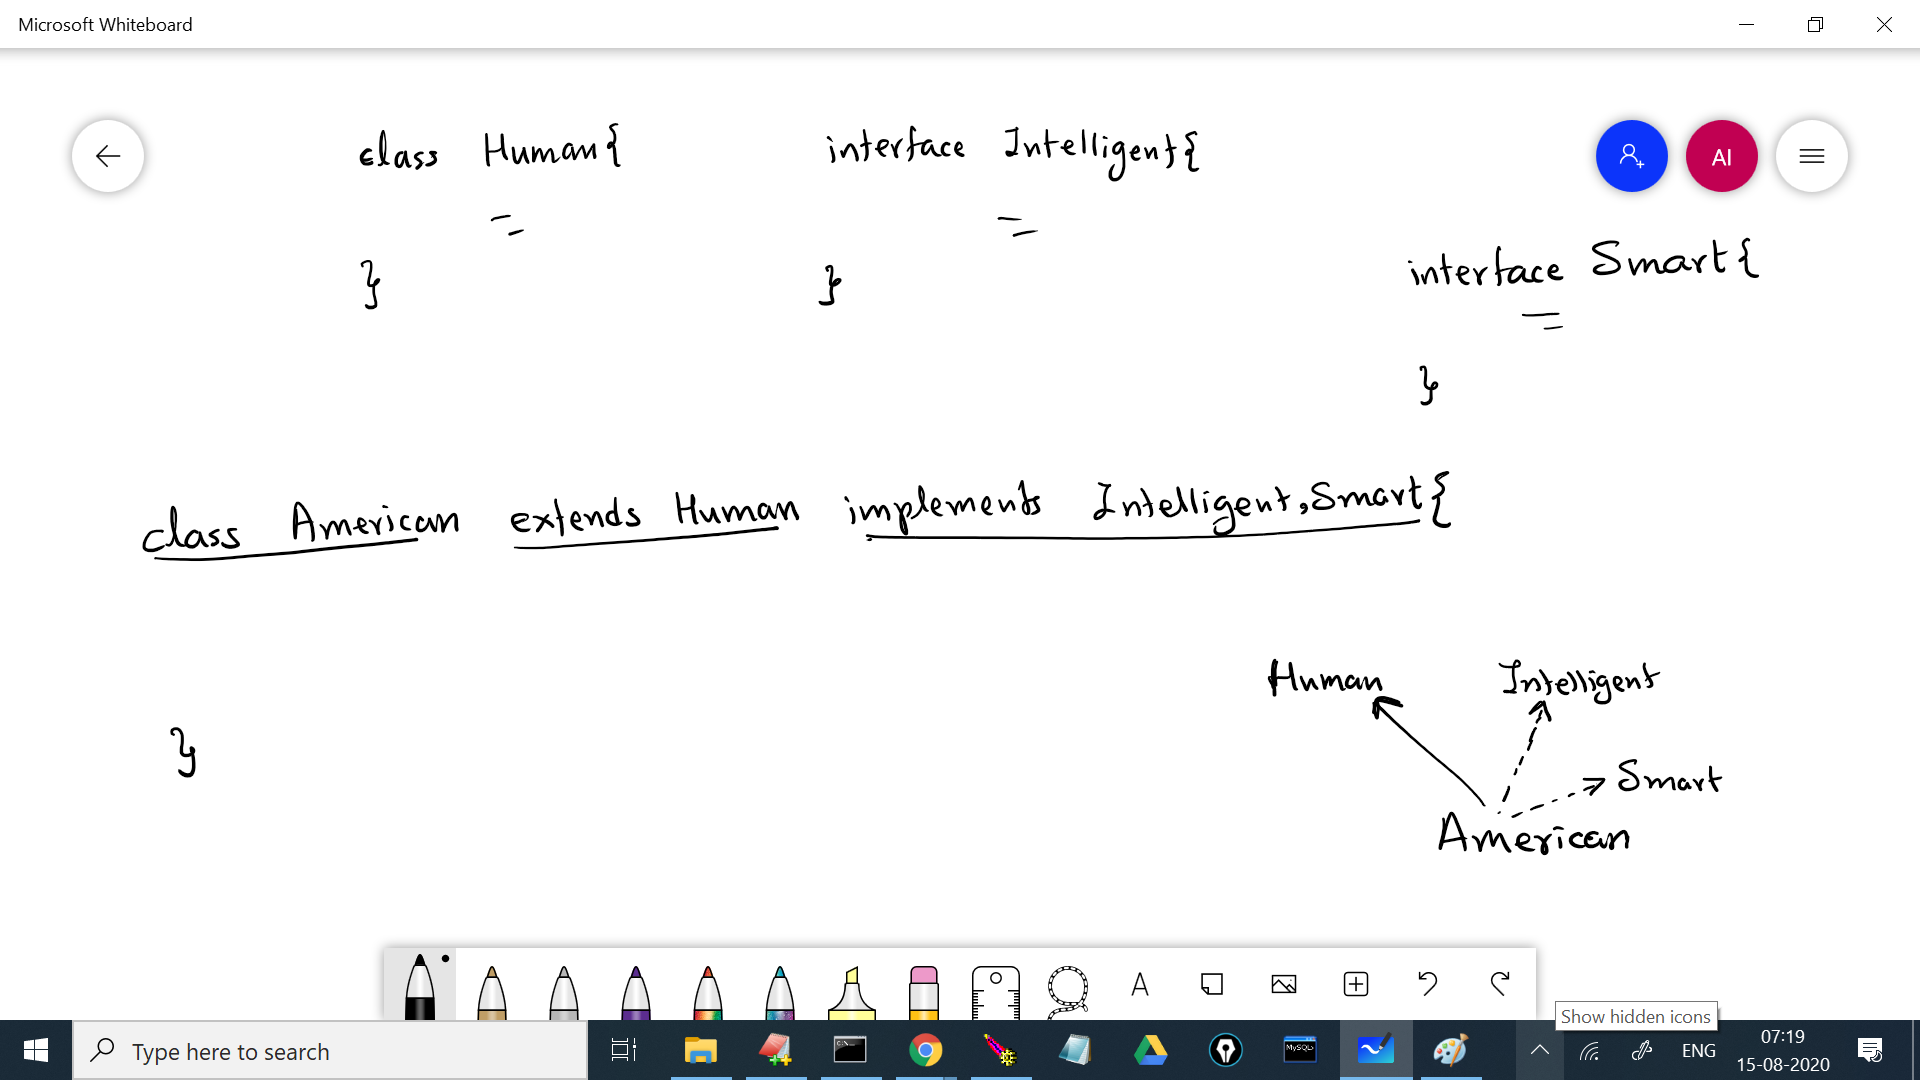 Microsoft Whiteboard
class Human{
interface Intelligent{
AI
}
}
interface Smart{
}
class American extends Human implements Intelligent,Smart{
}
Human
Intelligent
Smart
American
A
Show hidden icons
Type here to search
C:\
MySQL
ENG
07:19
15-08-2020